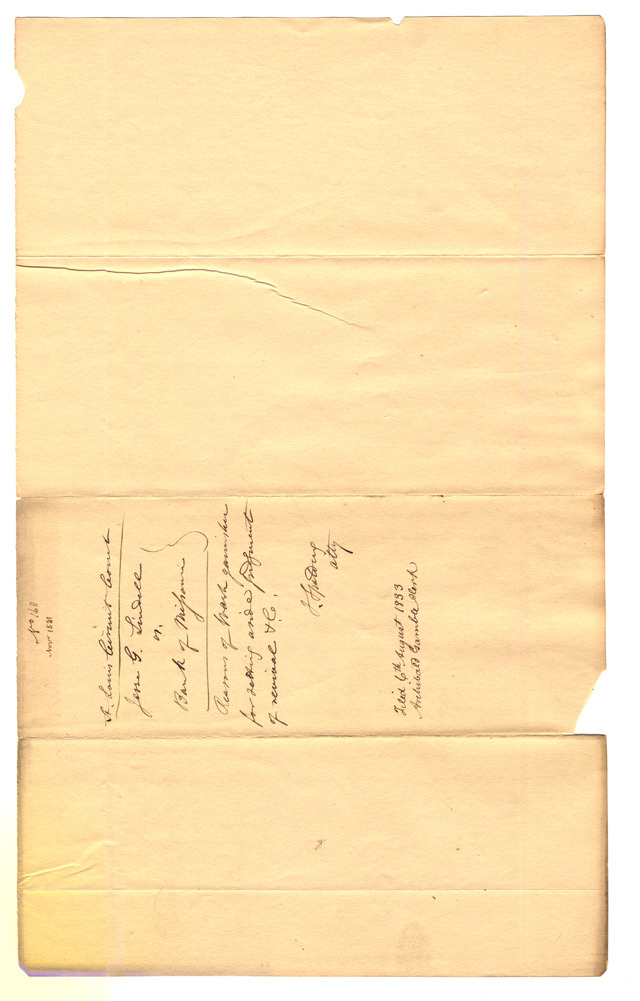 No 168
Nov 1831
St. Louis Circuit Court
Jesse G. Lindell
vs.
Bank of Missouri
Reasons of Wash garnishee
for setting aside judgment
of revival &C.
J. Spalding
atty
Filed 6th August 1833
Archibald Gamble Clerk